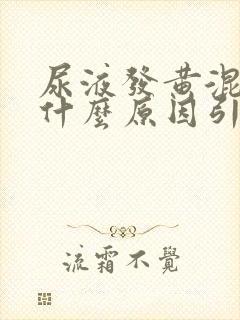 尿液發黃混
什麼原因引
流霜不覺